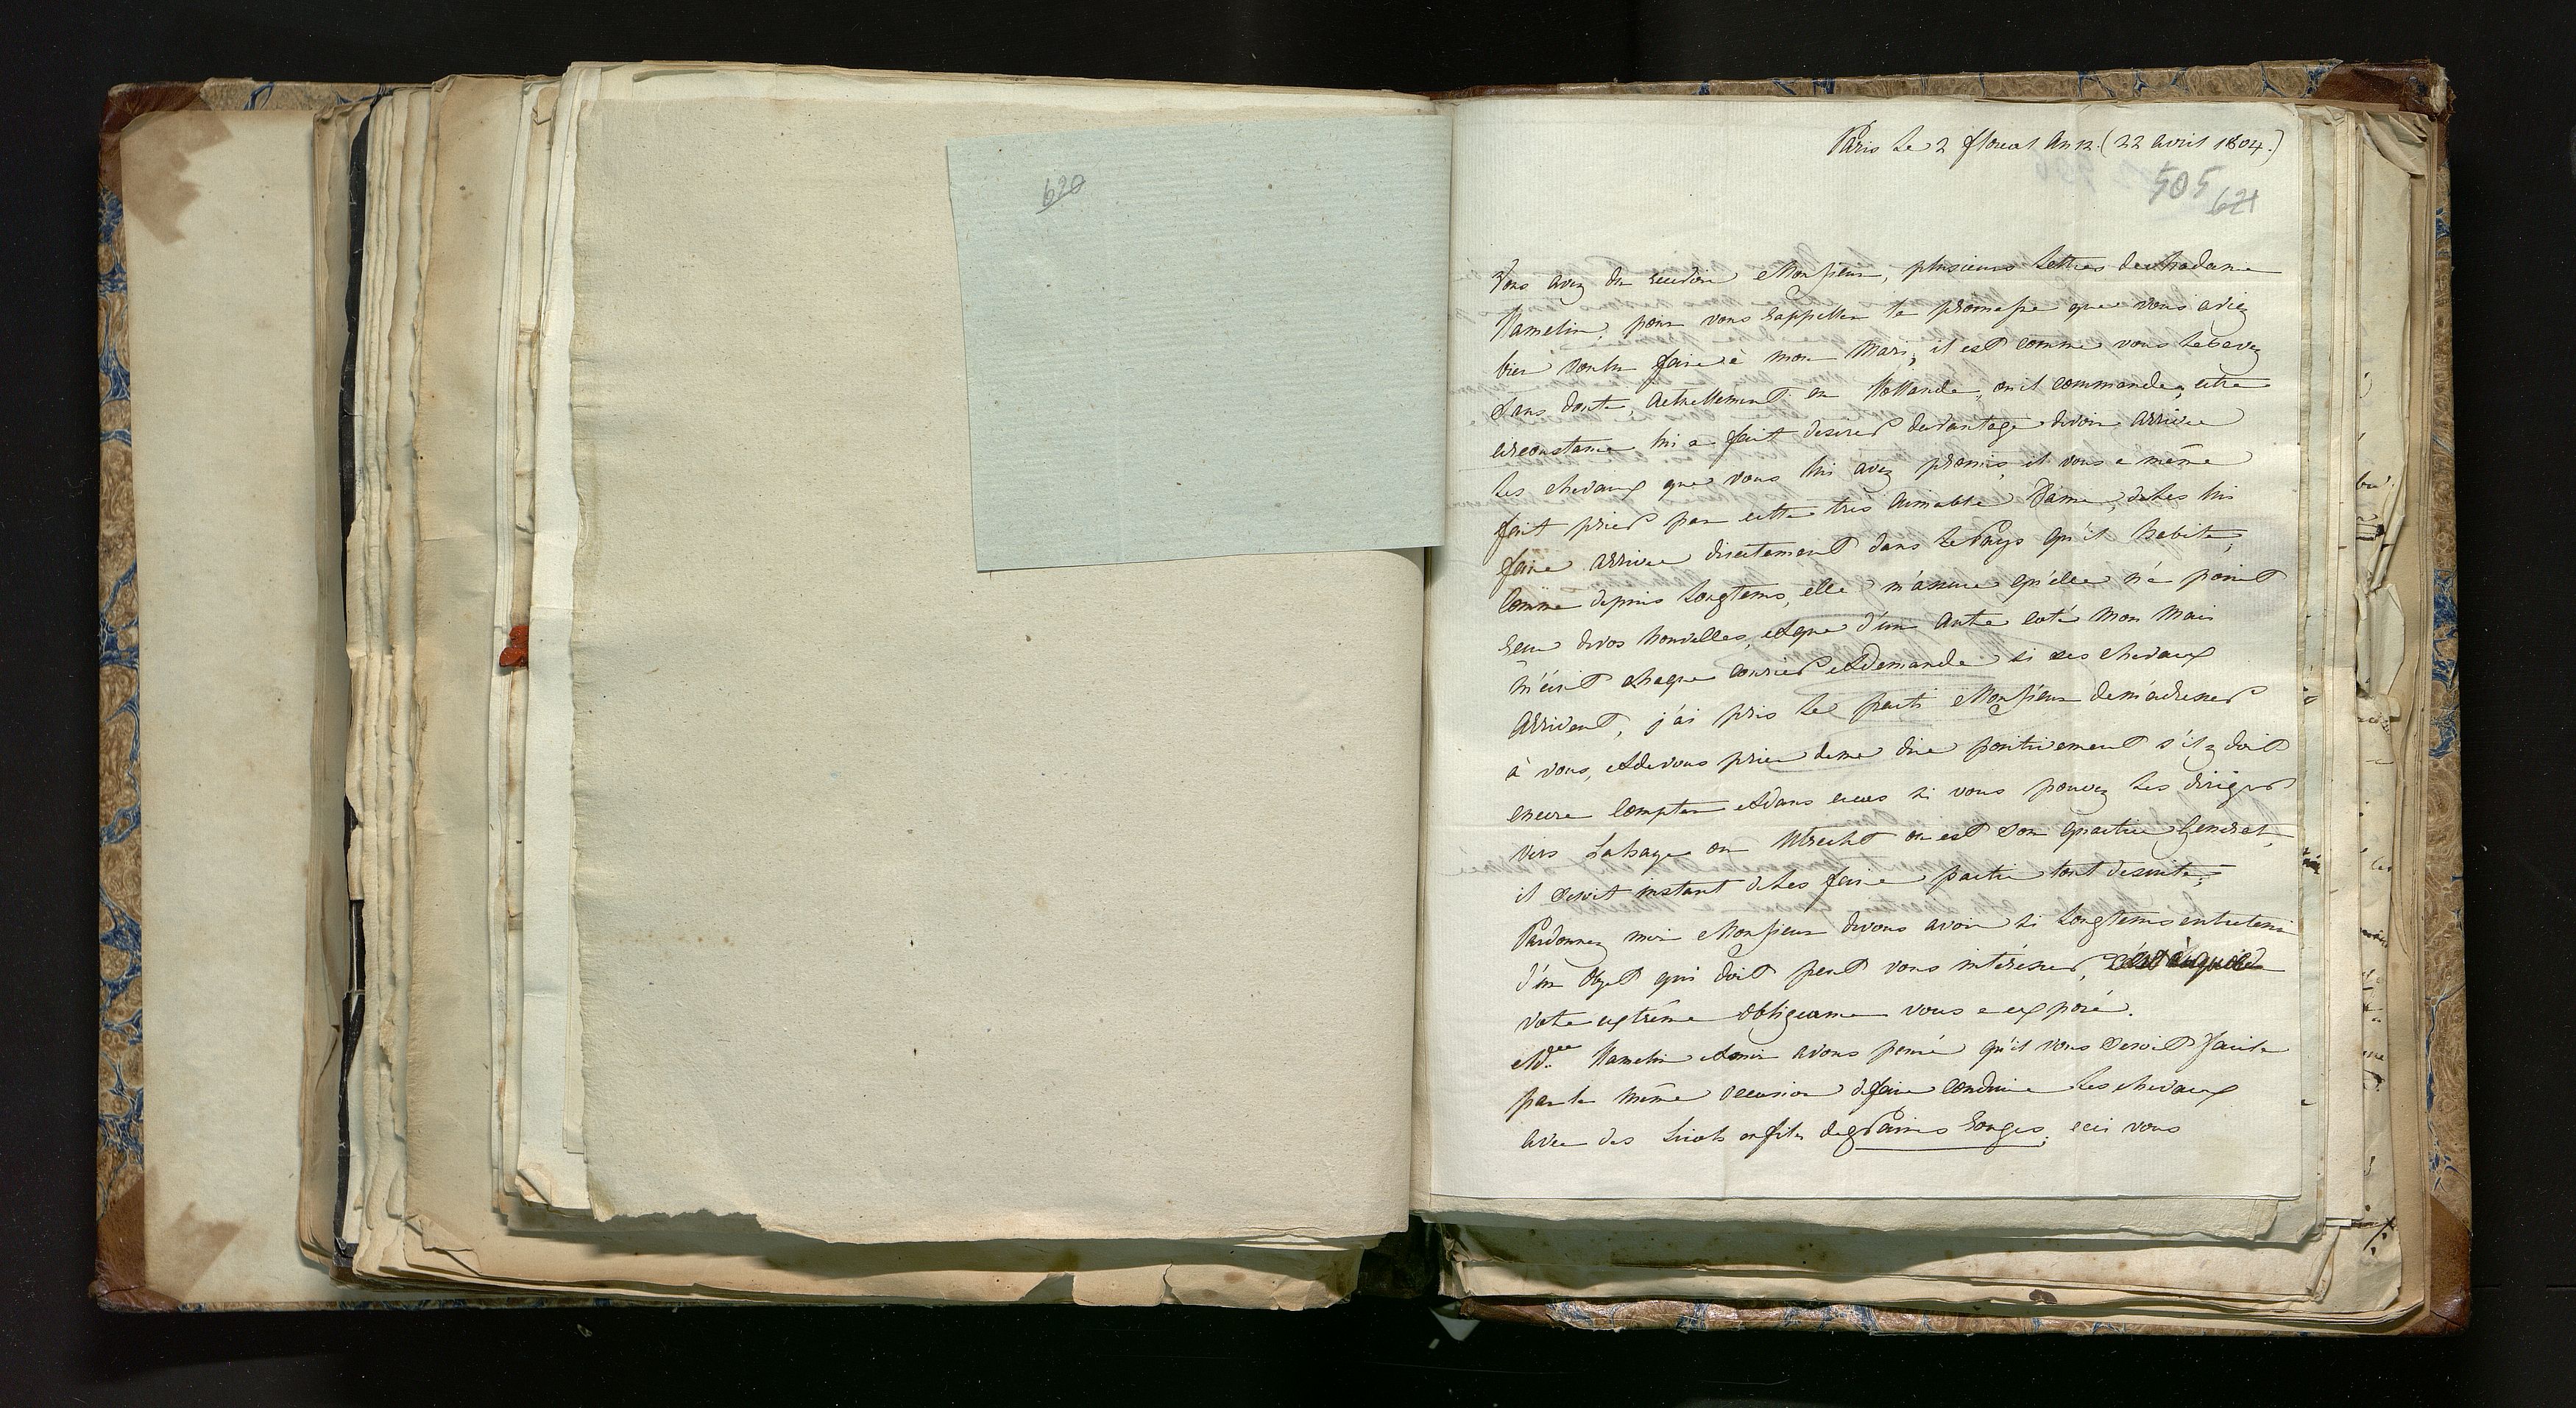 620
Paris Le 2 floreal An 12. (22 avril 1804.)
505
621
Vous avez du recevoir Monsieur, plusieurs Lettres de Madame
Hamelin, pour vous rappeller la promesse que vous aviez
bien voulu faire à mon Mari, il est comme vous Le Savez
Sans doute, actuellement en Hollande, où il commande, cette
circonstance lui a fait desirer davantage de voir arriver
Les chevaux que vous lui avez promis, il vous a même
fait prier par cette très aimable Dame, de Les lui
faire arriver directement dans Le Pays qu'il habite,
Comme depuis Longtems, elle m'assure qu'elle n'a point
reçu de vos Nouvelles, et que d'un Autre coté Mon Mari
m'écrit chaque Courier et demande si ses chevaux
Arrivent, j'ai pris Le parti Monsieur de m'adresser
à vous, et de vous prier de me dire positivement s'il y doit
encore Compter et dans ce cas si vous pouvez Les diriger
vers Lahaye ou Utrecht où est Son quartier General,
il Seroit instant de Les faire partir tout de suite;
Pardonnez moi Monsieur de vous avoir si Longtems entretenu
d'un Objet qui doit peut vous intéresser, c'est à quoi
votre extrême Obligeance vous a exposé.
Mde Hamelin et moi avons pensé qu'il vous Seroit facile
par la même occasion de faire conduire Les chevaux
avec des Licols en fil de grains rouges, ceci vous